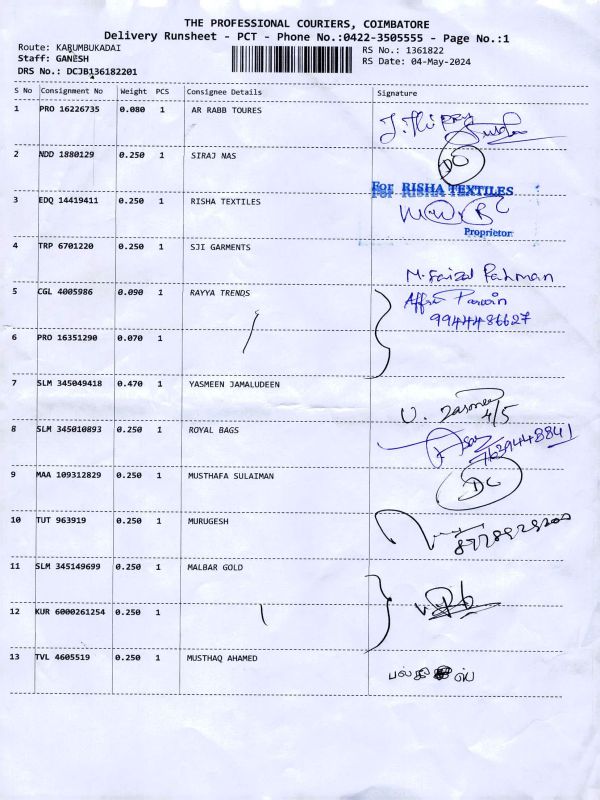 THE PROFESSIONAL COURIERS, COIMBATORE
Delivery Runsheet - PCT - Phone No.:0422-3505555 - Page No.:1
Route: KARUMBUKADAI
RS No.: 1361822
Staff: GANESH
RS Date: 04-May-2024
DRS No.: DCJB136182201
S No Consignment No Weight PCS Consignee Details Signature
1 PRO 16226735 0.080 1 AR RABB TOURES
2 NDD 1880129 0.250 1 SIRAJ NAS DC
For RISHA TEXTILES
3 EDQ 14419411 0.250 1 RISHA TEXTILES
Proprietor
4 TRP 6701220 0.250 1 SJI GARMENTS
M. Faizal Rahman
5 CGL 4005986 0.090 1 RAYYA TRENDS
9944486627
6 PRO 16351290 0.070 1
7 SLM 345049418 0.470 1 YASMEEN JAMALUDEEN
4/5
8 SLM 345010893 0.250 1 ROYAL BAGS
7639448841
9 MAA 109312829 0.250 1 MUSTHAFA SULAIMAN DC
10 TUT 963919 0.250 1 MURUGESH
11 SLM 345149699 0.250 1 MALBAR GOLD
12 KUR 6000261254 0.250 1
13 TVL 4605519 0.250 1 MUSTHAQ AHAMED